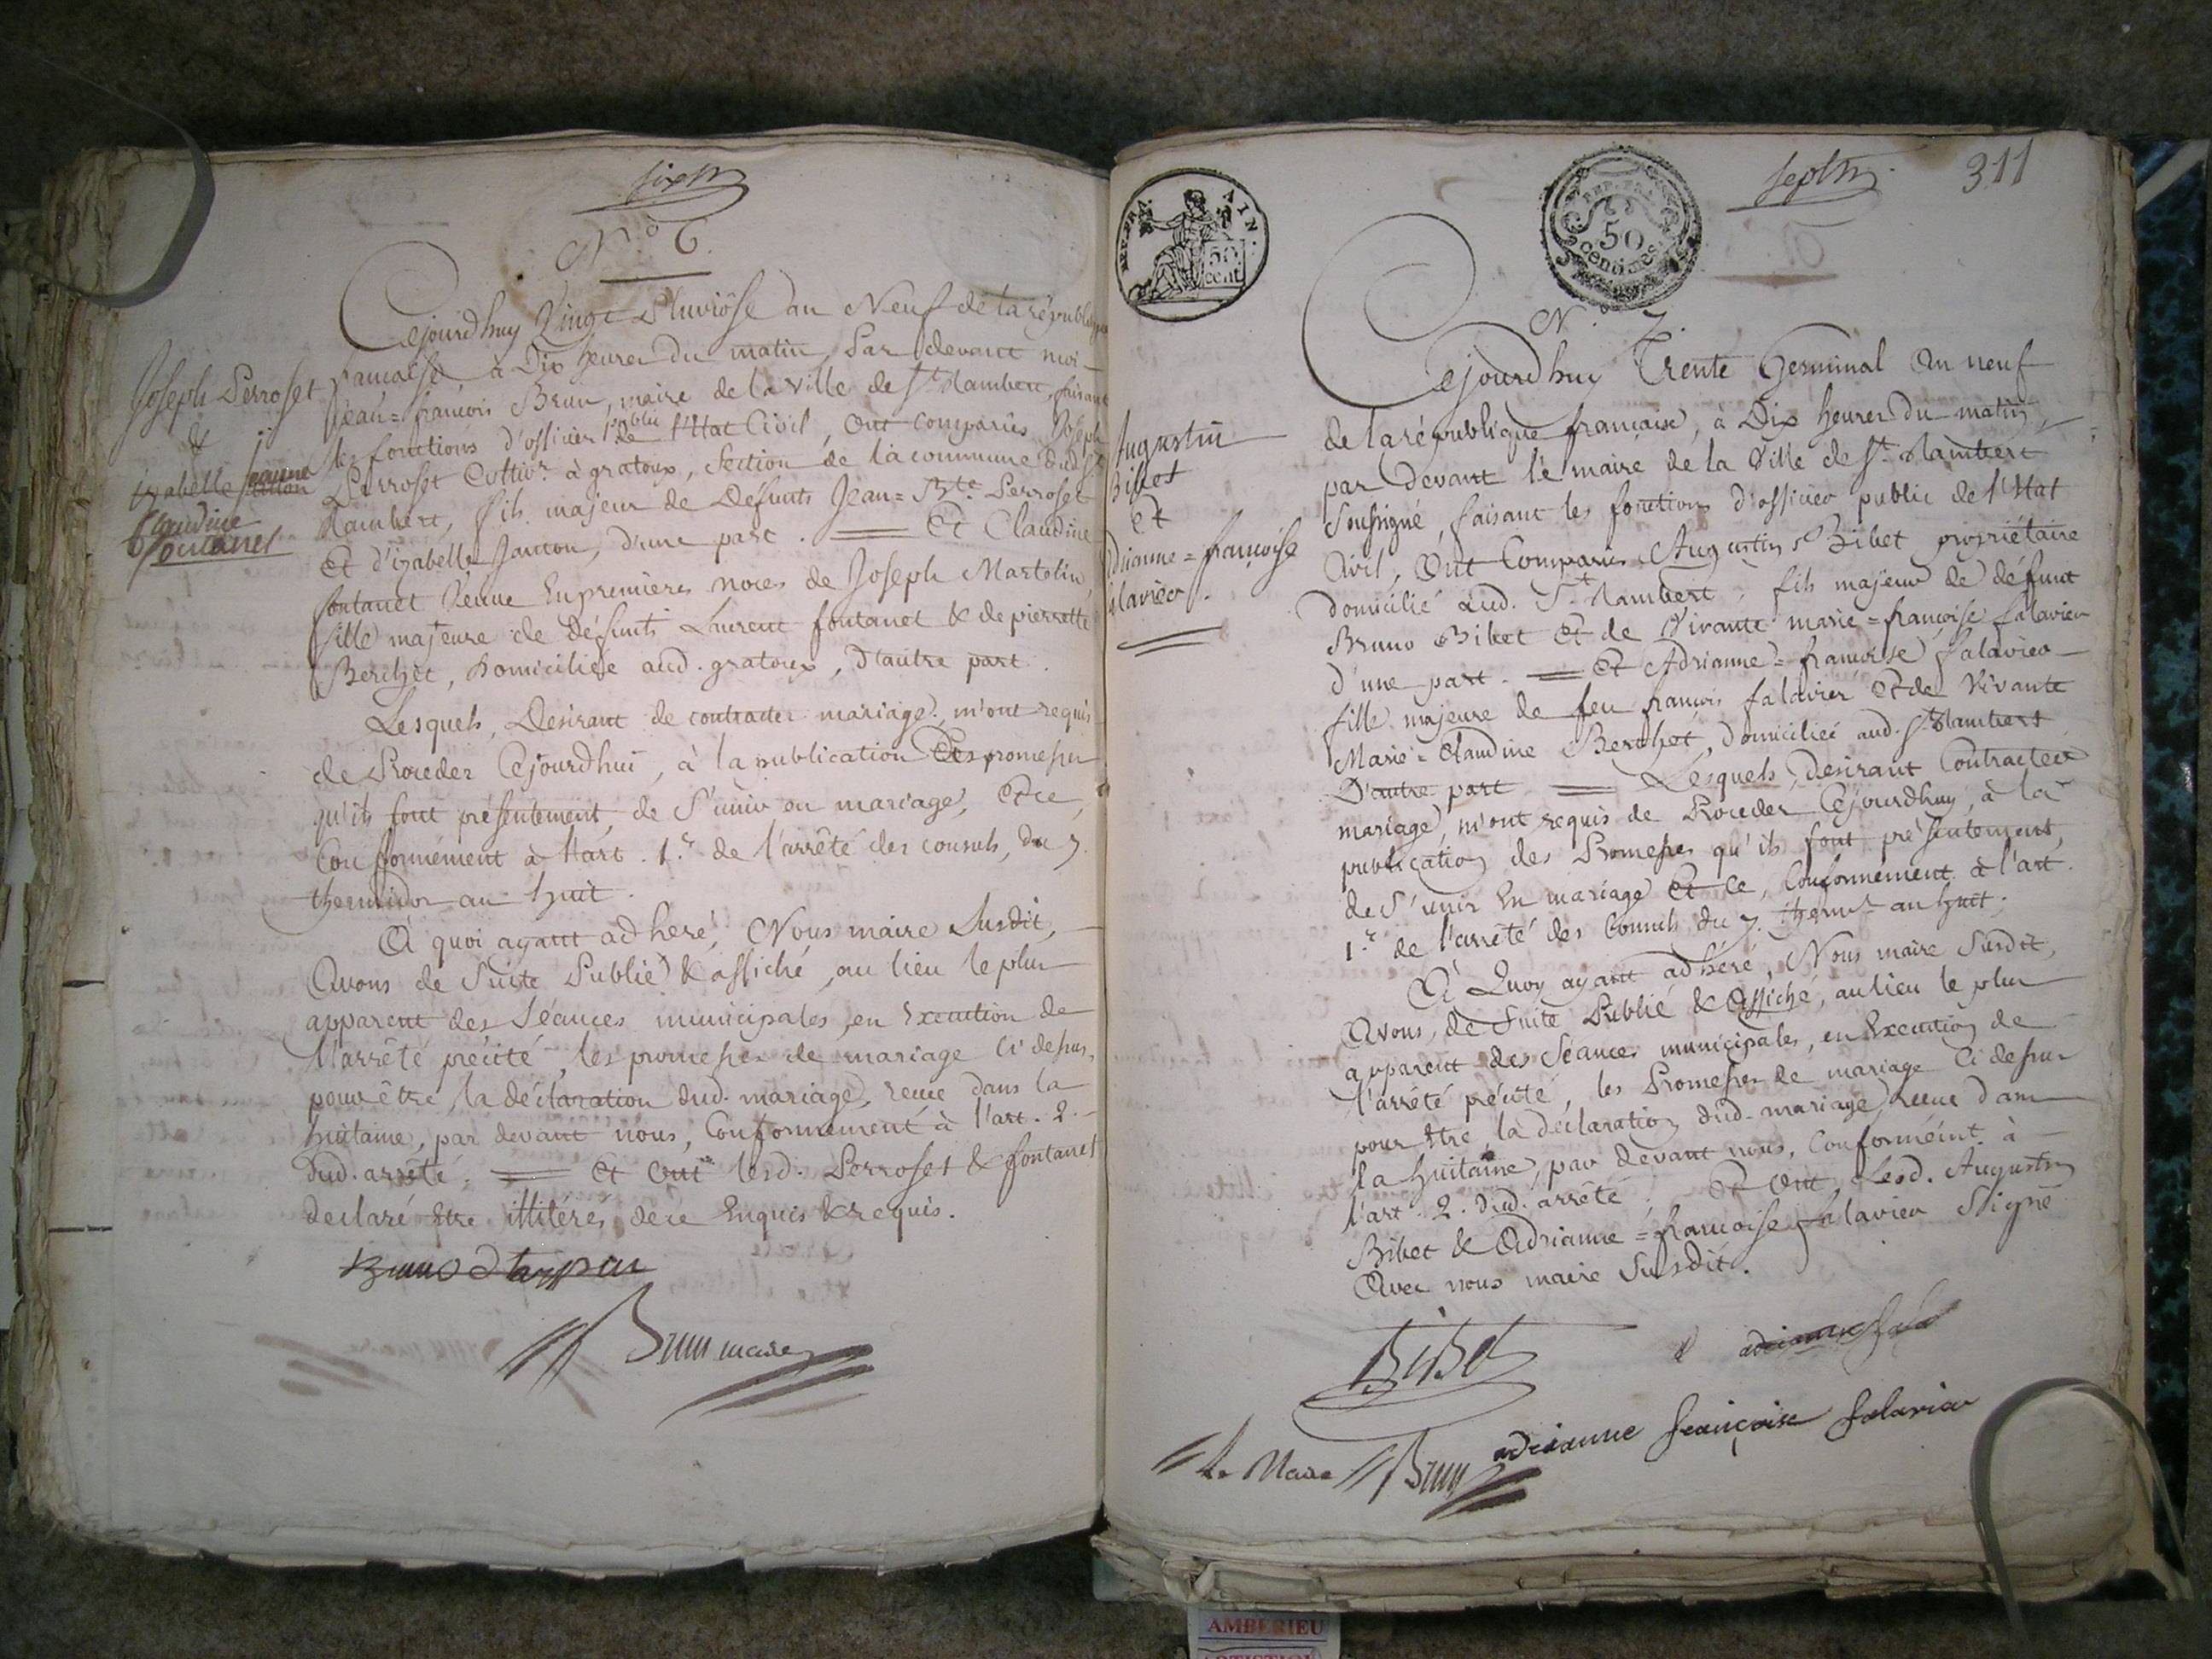 sixm
N.º 6.
Joseph Perroset
&
izabelle
Claudine
fontanet
Cejourdhuy Vingt Pluviôse an Neuf de la république
francaise, à Dix heures du matin, Par devant moi
Jean=françois Brun, maire de la Ville de St Rambert, faisant
les fonctions d'officier public de l'Etat Civil, Ont comparûs Joseph
Perroset Cultivr à gratoux, Section de la commune dud. St
Rambert, fils majeur de Défunts Jean=Bte Perroset
Et d'izabelle Janton, d'une part. = Et Claudine
fontanet Veuve En premieres noces de Joseph Martolin
fille majeure de Défunts Laurent fontanet & de pierrette
Berthet, Domiciliée aud. gratoux, D'autre part.
Lesquels, Desirant de contracter mariage, m'ont requis
de Proceder Cejourdhui, à la publication Des promesses
qu'ils font présentement, de S'unir en mariage, Et ce,
Conformément à l'art. 1.r de l'arrêté des consuls, du 7.
thermidor an huit.
A quoi ayant adhéré, Nous maire Susdit,
Avons de Suite Publié & affiché, au lieu le plus
apparent des Séances municipales, en Execution de
l'arrêté précité, les promesses de mariage Ci dessus,
pour être, la déclaration dud. mariage, recue dans la
huitaine, par devant nous, Conformément à l'art. 2.
dud. arrêté. = Et Ont lesd. Perroset & fontanet
declaré Etre illitérés, de ce Enquis & requis.
Brun maire
REP. FRA. AIN.
50
cent
REP. FRA.
50
Centimes
septm.
311
N.º 7.
Augustin
Bibet
Et
Adrianne=françoise
falavier.
Cejourdhuy Trente Germinal An neuf
de la république francaise, à Dix heures du matin,
par Devant le maire de la Ville de St. Rambert
Soussigné, faisant les fonctions d'officier public de l'Etat
Civil, Ont Comparus Augustin Bibet propriétaire
domicilié aud. St. Rambert, fils majeur de défunt
Bruno Bibet Et de Vivante marie=françoise falavier
d'une part. = Et Adrianne=francoise falavier
fille majeure de feu françois falavier Et de Vivante
Marie=Claudine Berthet, domiciliée aud. St Rambert
D'autre part = Lesquels, desirant Contracter
mariage, m'ont requis de Proceder Cejourdhuy, à la
publication des Promesses qu'ils font présentement,
de S'unir En mariage Et ce, Conformement à l'art.
1.r de l'arrêté des Consuls du 7. thermr an huit.
A Quoy ayant adhéré, Nous maire Susdit,
Avons, de Suite Publié & Affiché, au lieu le plus
apparent des Séances municipales, en Execution de
l'arrêté précité, les Promesses de mariage Ci dessus
pour Etre la déclaration dud. mariage, recue dans
la huitaine, par devant nous, Conformémt. à
l'art. 2. dud. arrêté. Et Ont Lesd. Augustin
Bibet & Adrianne=francoise falavier Signé
Avec nous maire Susdit.
Bibet
adrianne françoise falavier
Le Maire Brun
AMBERIEU